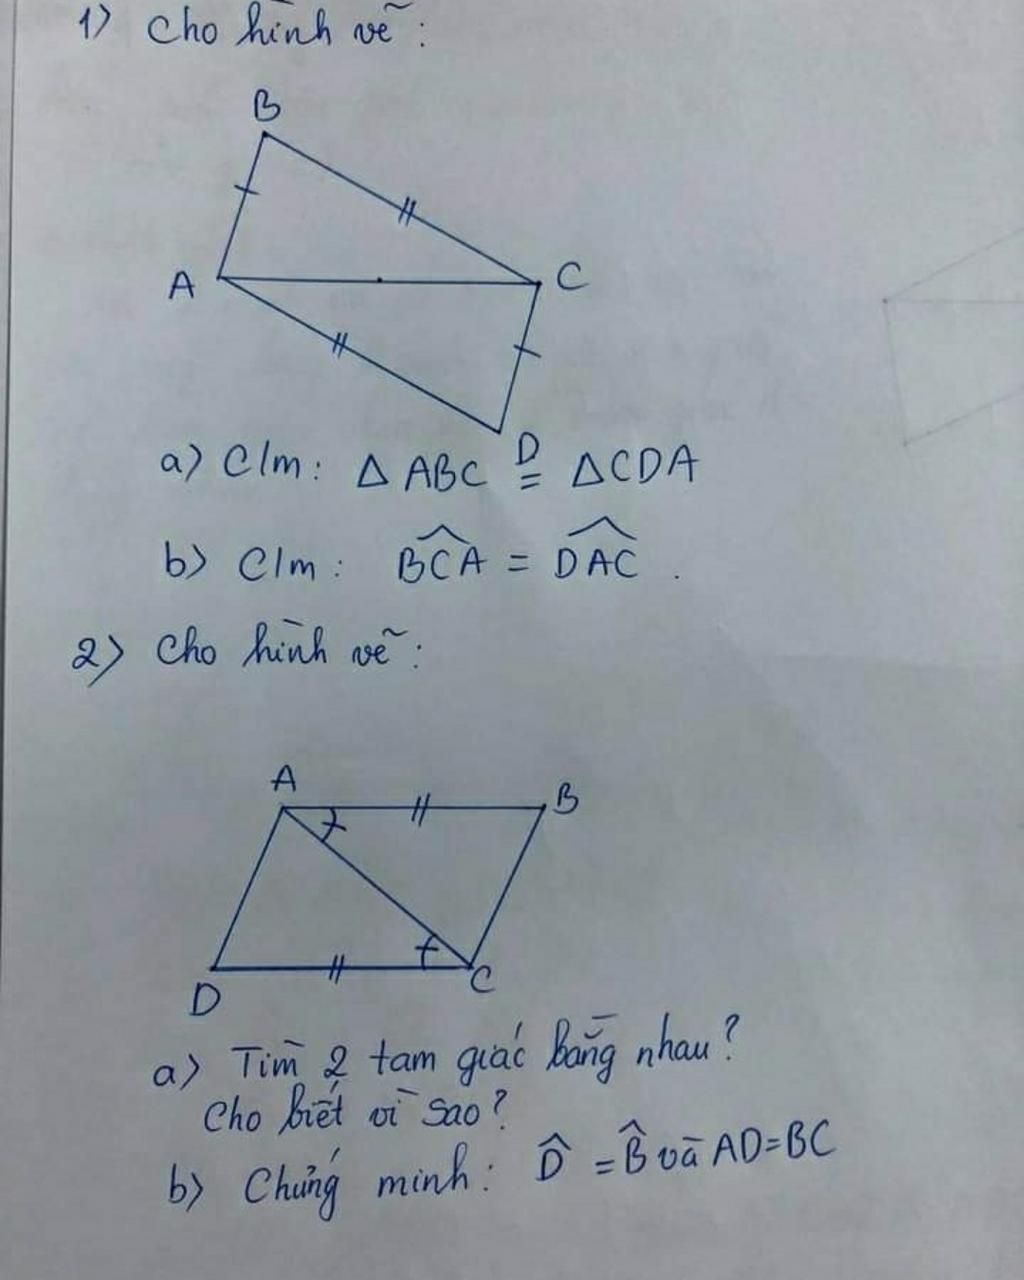 1) Cho hình vẽ:
B
A
C
D
a) C/m: Δ ABC = ΔCDA
b) C/m: BCA = DAC.
2) Cho hình vẽ:
A
B
D
C
a) Tìm 2 tam giác bằng nhau?
Cho biết vì sao?
b) Chứng minh: D̂ = B̂ và AD=BC